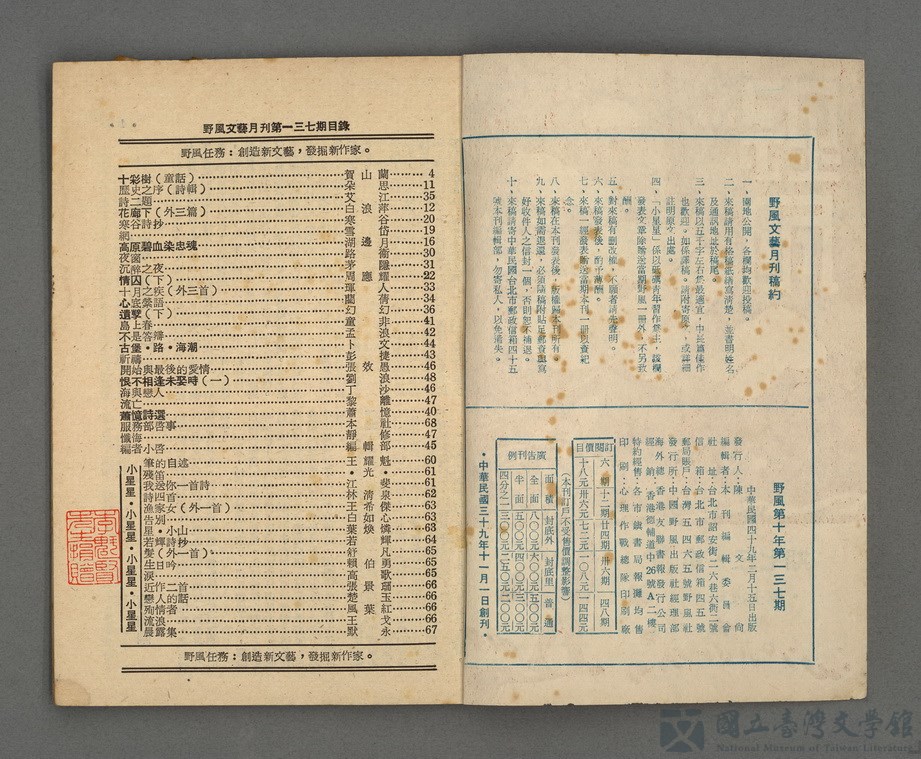 野風文藝月刊第一三七期目錄
野風任務：創造新文藝，發掘新作家。
十彩樹（童話）
賀
山
蘭
4
歷史之序（詩輯）
朵
思
11
詩二題
艾
江
35
花廊下（外三篇）
白
浪
萍
12
寒谷詩抄
寒
谷
20
網
雪
岱
19
高原碧血染忠魂
湖
邊
月
16
夜窗
路
衛
30
沉醉之夜
茅
隱
31
情囚（下）
周
應
耀
22
十月之疾（外三首）
人
33
心底藥語
蘭
蒨
34
遺孽（下）
幻
幻
36
島上春
童
非
41
不是答辯
孟
浪
42
古堡・路・海潮
卜
文
44
祈禱
彭
捷
43
開始與最後的愛情
張
效
愚
46
恨不相逢未娶時（一）
劉
浪
48
海與戀人
丁
沙
46
流亡
黎
離
47
蕭憶詩選
蕭
憶
40
服務部啓事
本
社
68
懺悔者
靜
修
47
編後小啓
編
輯
部
45
小星星・小星星・小星星・小星星
筆的自述
王
耀
魁
60
殘笛
光
61
我送你一首詩
江
斐
61
詩四首
林
清
泉
62
漁家女（外一首）
王
希
傑
63
告別
白
如
心
63
星・小山
王
煥
憐
63
若輝詩抄
葉
若
輝
64
髮（外一首）
舒
凡
65
生日
賴
伯
勇
65
淚吟
高
歌
65
近作二首
張
景
66
戀人的話
楚
玉
66
殉情者
葉
紅
66
流浪
風
戈
66
晨露集
王
默
永
67
野風任務：創造新文藝，發掘新作家。
野風文藝月刊稿約
一、園地公開，各欄均歡迎投稿。
二、來稿請用有格稿紙繕寫清楚，並書明姓名及通訊地址於稿尾。
三、來稿以五千字左右爲最適宜，中長篇佳作也歡迎。如係譯稿。請附寄原文，或詳細註明原文出處。
四、「小星星」係以砥礪靑年習作爲主，該欄發表文章除贈送當期野風一冊外，不另致酬。
五、對來稿有刪改權，不願者請先聲明。
六、來稿發表後，酌予薄酬。
七、來稿一經發表贈送當期本刊一冊以資紀念。
八、來稿在本刊發表後，版權歸本刊所有。
九、來稿如需退還，必須隨稿附貼足郵資與寫好收件人之信封一個，否則恕不補退。
十、來稿請寄中華民國台北市郵政信箱四十五號本刊編輯部，勿寄私人，以免遺失。
野風第十年第一三七期
中華民國四十九年二月十五日出版
發行人：陳文尚
編輯者：本刊編輯委員會
社址：台北市詔安街二六巷六街二號
信箱：台北市郵政信箱四五號
郵局賬戶：台灣五四六五號野風社
發行所：中國野風出版社經理部
海外總經銷：香港友聯書報發行公司
香港德輔道中26號A二樓
特約經售：各市鎮書局報攤均售
印刷：心理作戰總隊印刷廠
訂閱價目
六期 十二期 廿四期 卅六期 四八期
十八元 卅六元 七二元 一〇八元 一四四元
（本刊訂戶不受售價調整影響）
廣告刊例
面積 封底外 封底裏 普通
全面 八〇〇元 六〇〇元 五〇〇元
半面 五〇〇元 四〇〇元 三〇〇元
四分之一 三〇〇元 二五〇元 二〇〇元
・中華民國三十九年十一月一日創刊・
國立臺灣文學館
National Museum of Taiwan Literature